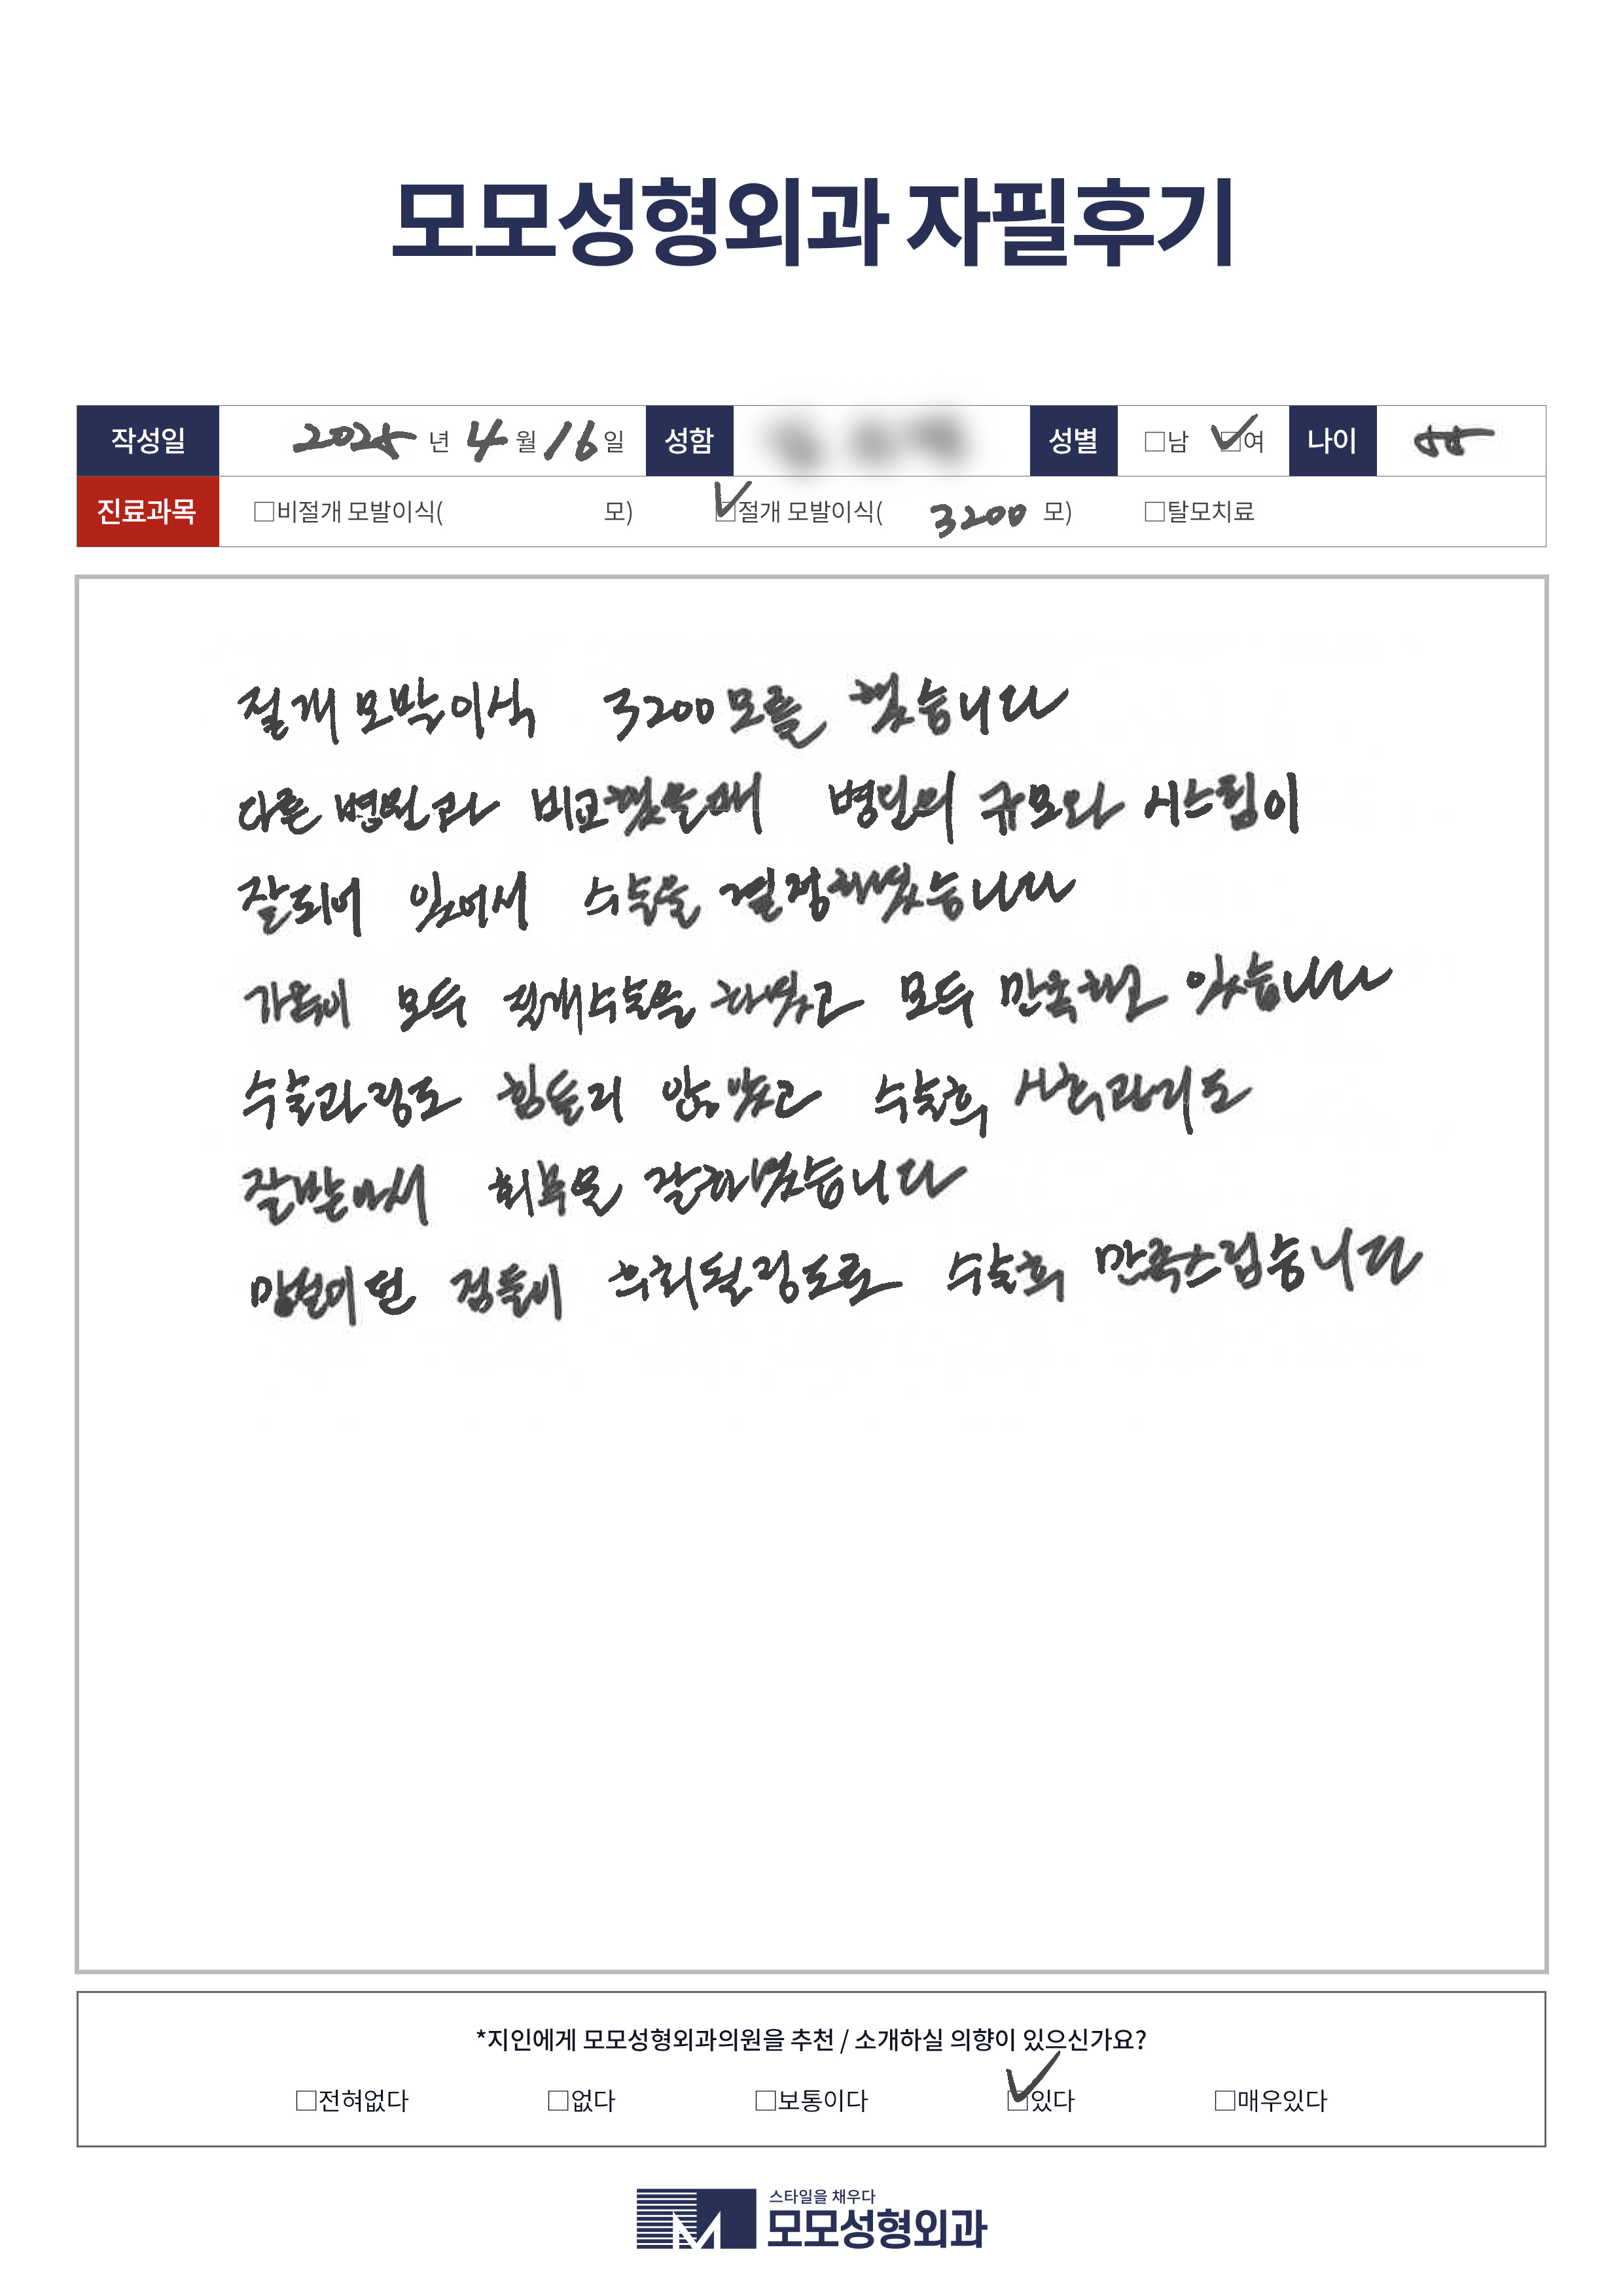 모모성형외과 자필후기
작성일 2025 년 4 월 16 일 성함 성별 □남 ☑여 나이 55
진료과목 □비절개 모발이식( 모) ☑절개 모발이식( 3200 모) □탈모치료
절개 모발이식 3200모를 했습니다
다른 병원과 비교했을때 병원의 규모와 시스템이
잘되어 있어서 수술을 결정하였습니다
가족이 모두 절개수술을 하였고 모두 만족하고 있습니다
수술과정도 힘들지 않았고 수술후 사후관리도
잘받아서 회복을 잘하였습니다
망설이던 점들이 후회될정도로 수술후 만족스럽습니다
*지인에게 모모성형외과의원을 추천 / 소개하실 의향이 있으신가요?
□전혀없다 □없다 □보통이다 ☑있다 □매우있다
스타일을 채우다
모모성형외과